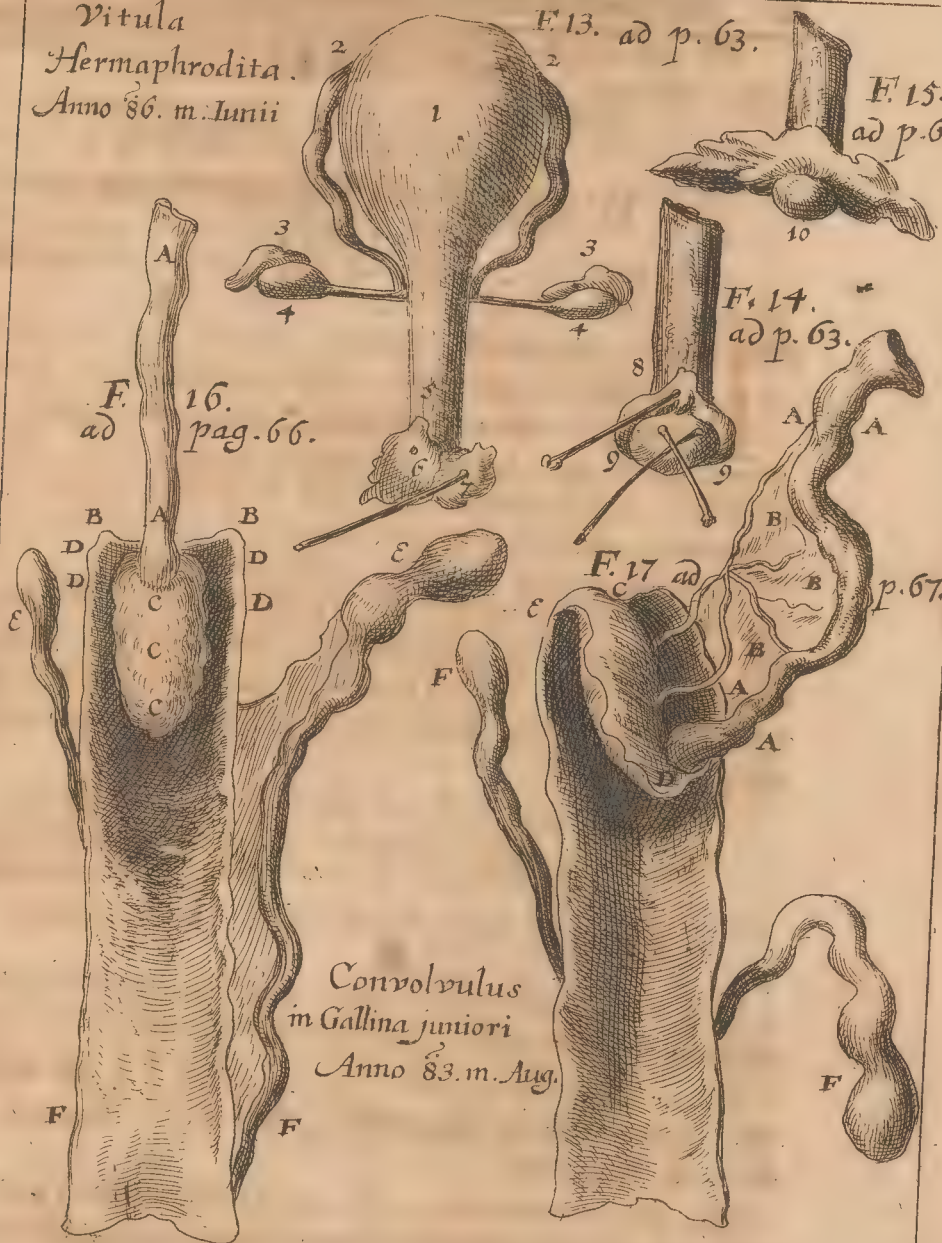 Vitula
Hermaphrodita.
Anno 86. m. Iunii
F. 13. ad p. 63.
2
2
1
3
3
4
4
5
6
7
F. 15.
ad p. 6
10
F. 14.
ad p. 63.
8
9
9
F. 16.
ad pag. 66.
A
A
B
B
D
D
D
D
C
C
C
E
E
F
F
F. 17 ad p. 67.
A
A
B
B
B
A
A
C
E
D
F
F
Convolvulus
in Gallina juniori
Anno 83. m. Aug.